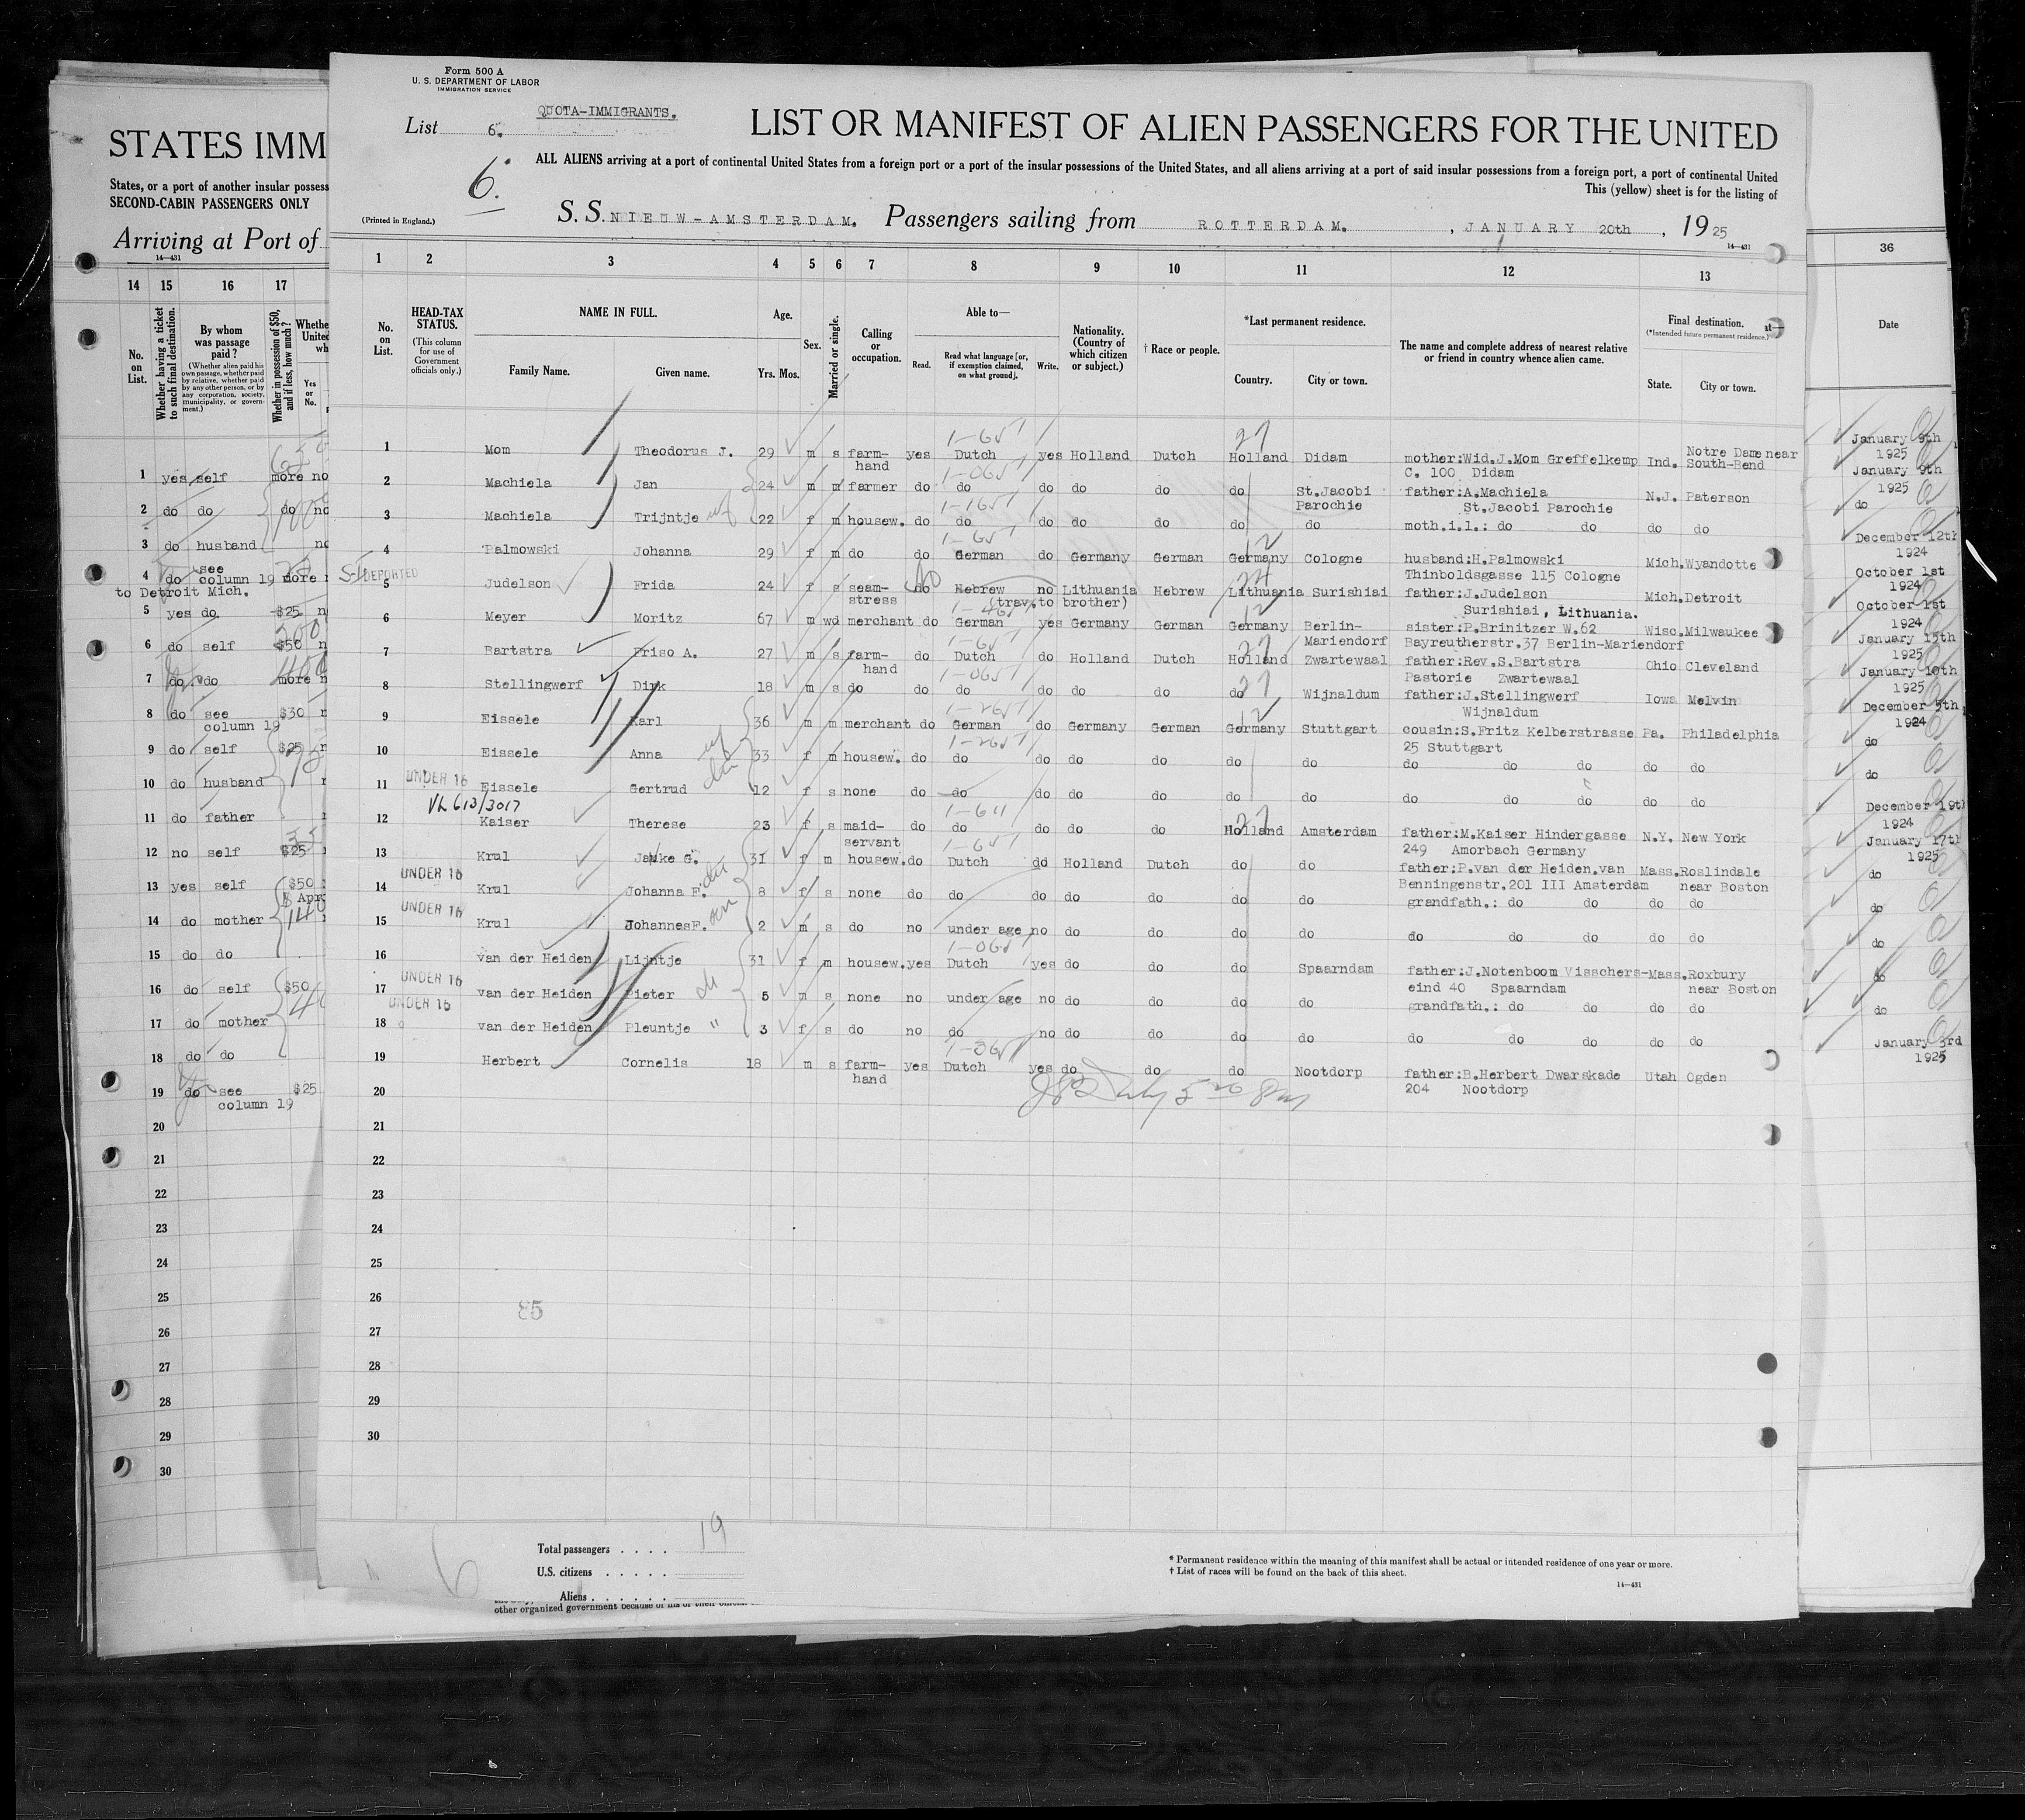 Form 500 A
U. S. DEPARTMENT OF LABOR
IMMIGRATION SERVICE
QUOTA-IMMIGRANTS.
List 6.
6.
LIST OR MANIFEST OF ALIEN PASSENGERS FOR THE UNITED
ALL ALIENS arriving at a port of continental United States from a foreign port or a port of the insular possessions of the United States, and all aliens arriving at a port of said insular possessions from a foreign port, a port of continental United
This (yellow) sheet is for the listing of
(Printed in England.)
S. S. NIEUW-AMSTERDAM. Passengers sailing from ROTTERDAM. , JANUARY 20th , 19 25
14—431
1 2 3 4 5 6 7 8 9 10 11 12 13
No. on List.
HEAD-TAX STATUS.
(This column for use of Government officials only.)
NAME IN FULL.
Family Name. Given name.
Age.
Yrs. Mos.
Sex.
Married or single.
Calling or occupation.
Able to—
Read. Read what language [or, if exemption claimed, on what ground]. Write.
Nationality. (Country of which citizen or subject.)
† Race or people.
*Last permanent residence.
Country. City or town.
The name and complete address of nearest relative or friend in country whence alien came.
Final destination.
(*Intended future permanent residence.)
State. City or town.
1 Mom Theodorus J. 29 m s farm-hand yes Dutch yes Holland Dutch Holland Didam mother:Wid.J.Mom Greffelkemp C. 100 Didam Ind. Notre Dame near South-Bend
2 Machiela Jan 24 m m farmer do do do do do do St.Jacobi Parochie father:A.Machiela St.Jacobi Parochie N.J. Paterson
3 Machiela Trijntje wf 22 f m housew. do do do do do do do moth.i.l.: do do do do
4 Palmowski Johanna 29 f m do do German do Germany German Germany Cologne husband:H.Palmowski Thinboldsgasse 115 Cologne Mich. Wyandotte
DEPORTED
5 Judelson Frida 24 f s seam-stress do Hebrew no Lithuania Hebrew Lithuania Surishiai father:J.Judelson Surishiai, Lithuania. Mich. Detroit
(trav.to brother)
6 Meyer Moritz 67 m wd merchant do German yes Germany German Germany Berlin-Mariendorf sister:P.Brinitzer W.62 Bayreutherstr.37 Berlin-Mariendorf Wisc. Milwaukee
7 Bartstra Friso A. 27 m s farm-hand do Dutch do Holland Dutch Holland Zwartewaal father:Rev.S.Bartstra Pastorie Zwartewaal Ohio Cleveland
8 Stellingwerf Dirk 18 m s do do do do do do do Wijnaldum father:J.Stellingwerf Wijnaldum Iowa Melvin
9 Eissele Karl 36 m m merchant do German do Germany German Germany Stuttgart cousin:S.Fritz Kelberstrasse 25 Stuttgart Pa. Philadelphia
10 Eissele Anna wf 33 f m housew. do do do do do do do do do do do do
UNDER 16
11 Eissele Gertrud 12 f s none do do do do do do do do do do do do
VL 613/3017
12 Kaiser Therese 23 f s maid-servant do do do do do Holland Amsterdam father:M.Kaiser Hindergasse 249 Amorbach Germany N.Y. New York
13 Krul Jauke G. 31 f m housew. do Dutch do Holland Dutch do do father:P.van der Heiden.van Benningenstr.201 III Amsterdam Mass. Roslindale near Boston
UNDER 16
14 Krul Johanna F. 8 f s none do do do do do do do grandfath.: do do do do
UNDER 16
15 Krul JohannesF. son 2 m s do no under age no do do do do do do do do do
16 van der Heiden Lijntje 31 f m housew. yes Dutch yes do do do Spaarndam father:J.Notenboom Visschers-eind 40 Spaarndam Mass. Roxbury near Boston
UNDER 16
17 van der Heiden Pieter 5 m s none no under age no do do do do grandfath.: do do do do
UNDER 16
18 van der Heiden Pleuntje " 3 f s do no do no do do do do do do do do do
19 Herbert Cornelis 18 m s farm-hand yes Dutch yes do do do Nootdorp father:B.Herbert Dwarskade 204 Nootdorp Utah Ogden
20
21
22
23
24
25
26
27
28
29
30
85
6
Total passengers . . . . 19
U.S. citizens . . . . .
Aliens . . . . . .
other organized government because of his or their official
* Permanent residence within the meaning of this manifest shall be actual or intended residence of one year or more.
† List of races will be found on the back of this sheet.
14—431
STATES IMM
States, or a port of another insular possess
SECOND-CABIN PASSENGERS ONLY
Arriving at Port of
14—431
14 15 16 17
No. on List.
Whether having a ticket to such final destination.
By whom was passage paid?
(Whether alien paid his own passage, whether paid by relative, whether paid by any other person, or by any corporation, society, municipality, or government.)
Whether in possession of $50, and if less, how much?
Yes or No.
1 yes self more no
2 do do do no
3 do husband no
4 do see column 19 more
to Detroit Mich.
5 yes do $25
6 do self $50
7 do do more
8 do see column 19 $30
9 do self $25
10 do husband
11 do father
12 no self $25
13 yes self $50
14 do mother
15 do do
16 do self $50
17 do mother
18 do do
19 do see column 19 $25
20
21
22
23
24
25
26
27
28
29
30
36
Date
January 9th 1925
January 9th 1925
do
December 12th 1924
October 1st 1924
October 1st 1924
January 15th 1925
January 10th 1925
December 5th 1924
do
do
December 19th 1924
January 17th 1925
do
do
do
do
do
January 3rd 1925